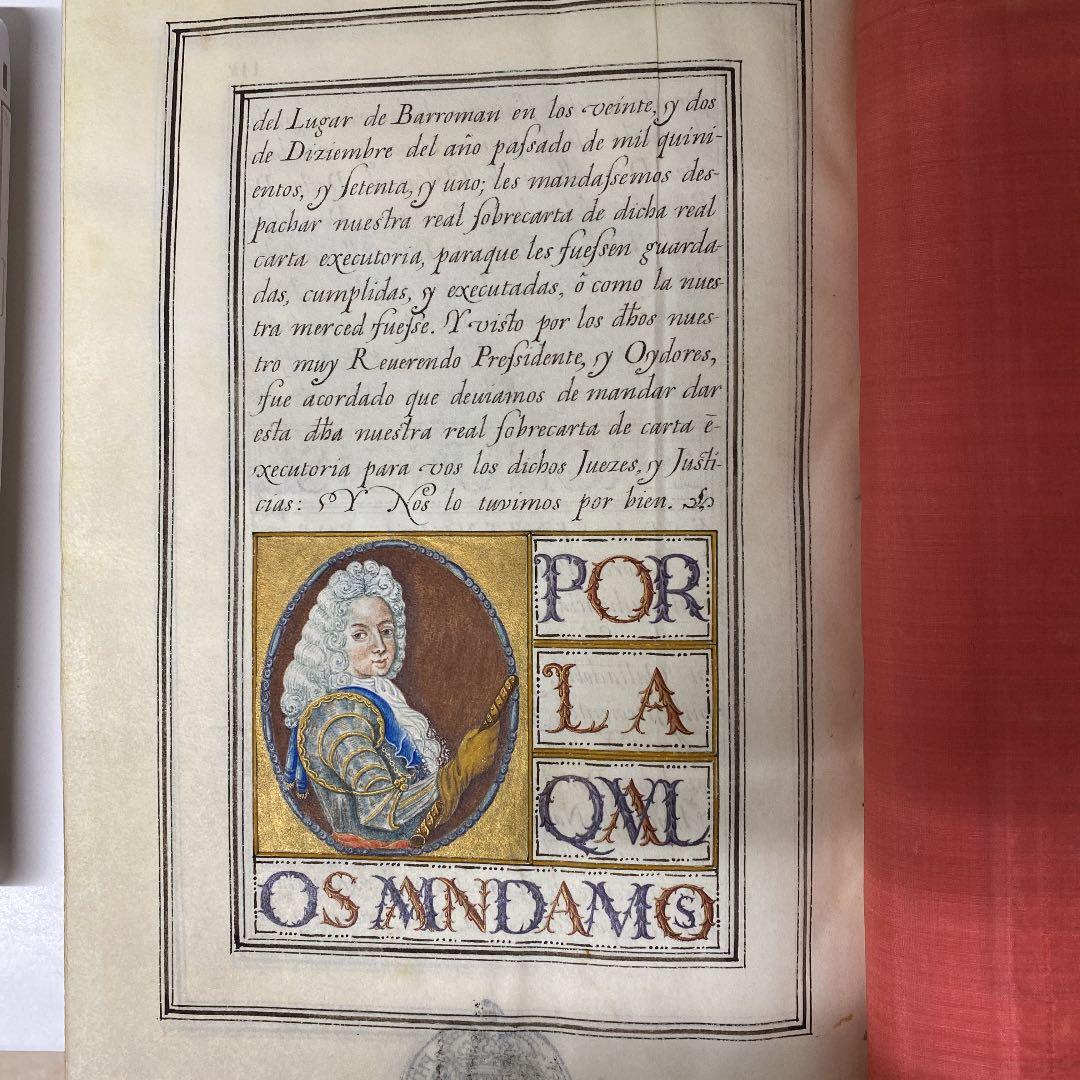 del Lugar de Barroman en los veinte, y dos
de Diziembre del año paſsado de mil quini-
entos, y ſetenta, y uno; les mandaſsemos des-
pachar nuestra real ſobrecarta de dicha real
carta executoria, paraque les fueſsen guarda-
das, cumplidas, y executadas, ô como la nues-
tra merced fueſse. Y visto por los dhos nues-
tro muy Reuerendo Preſsidente, y Oydores,
fue acordado que deuiamos de mandar dar
esta dha nuestra real ſobrecarta de carta ē-
xecutoria para vos los dichos Juezes, y Justi-
cias: Y Nos lo tuvimos por bien.
POR
LA
QUAL
OS MANDAMOS